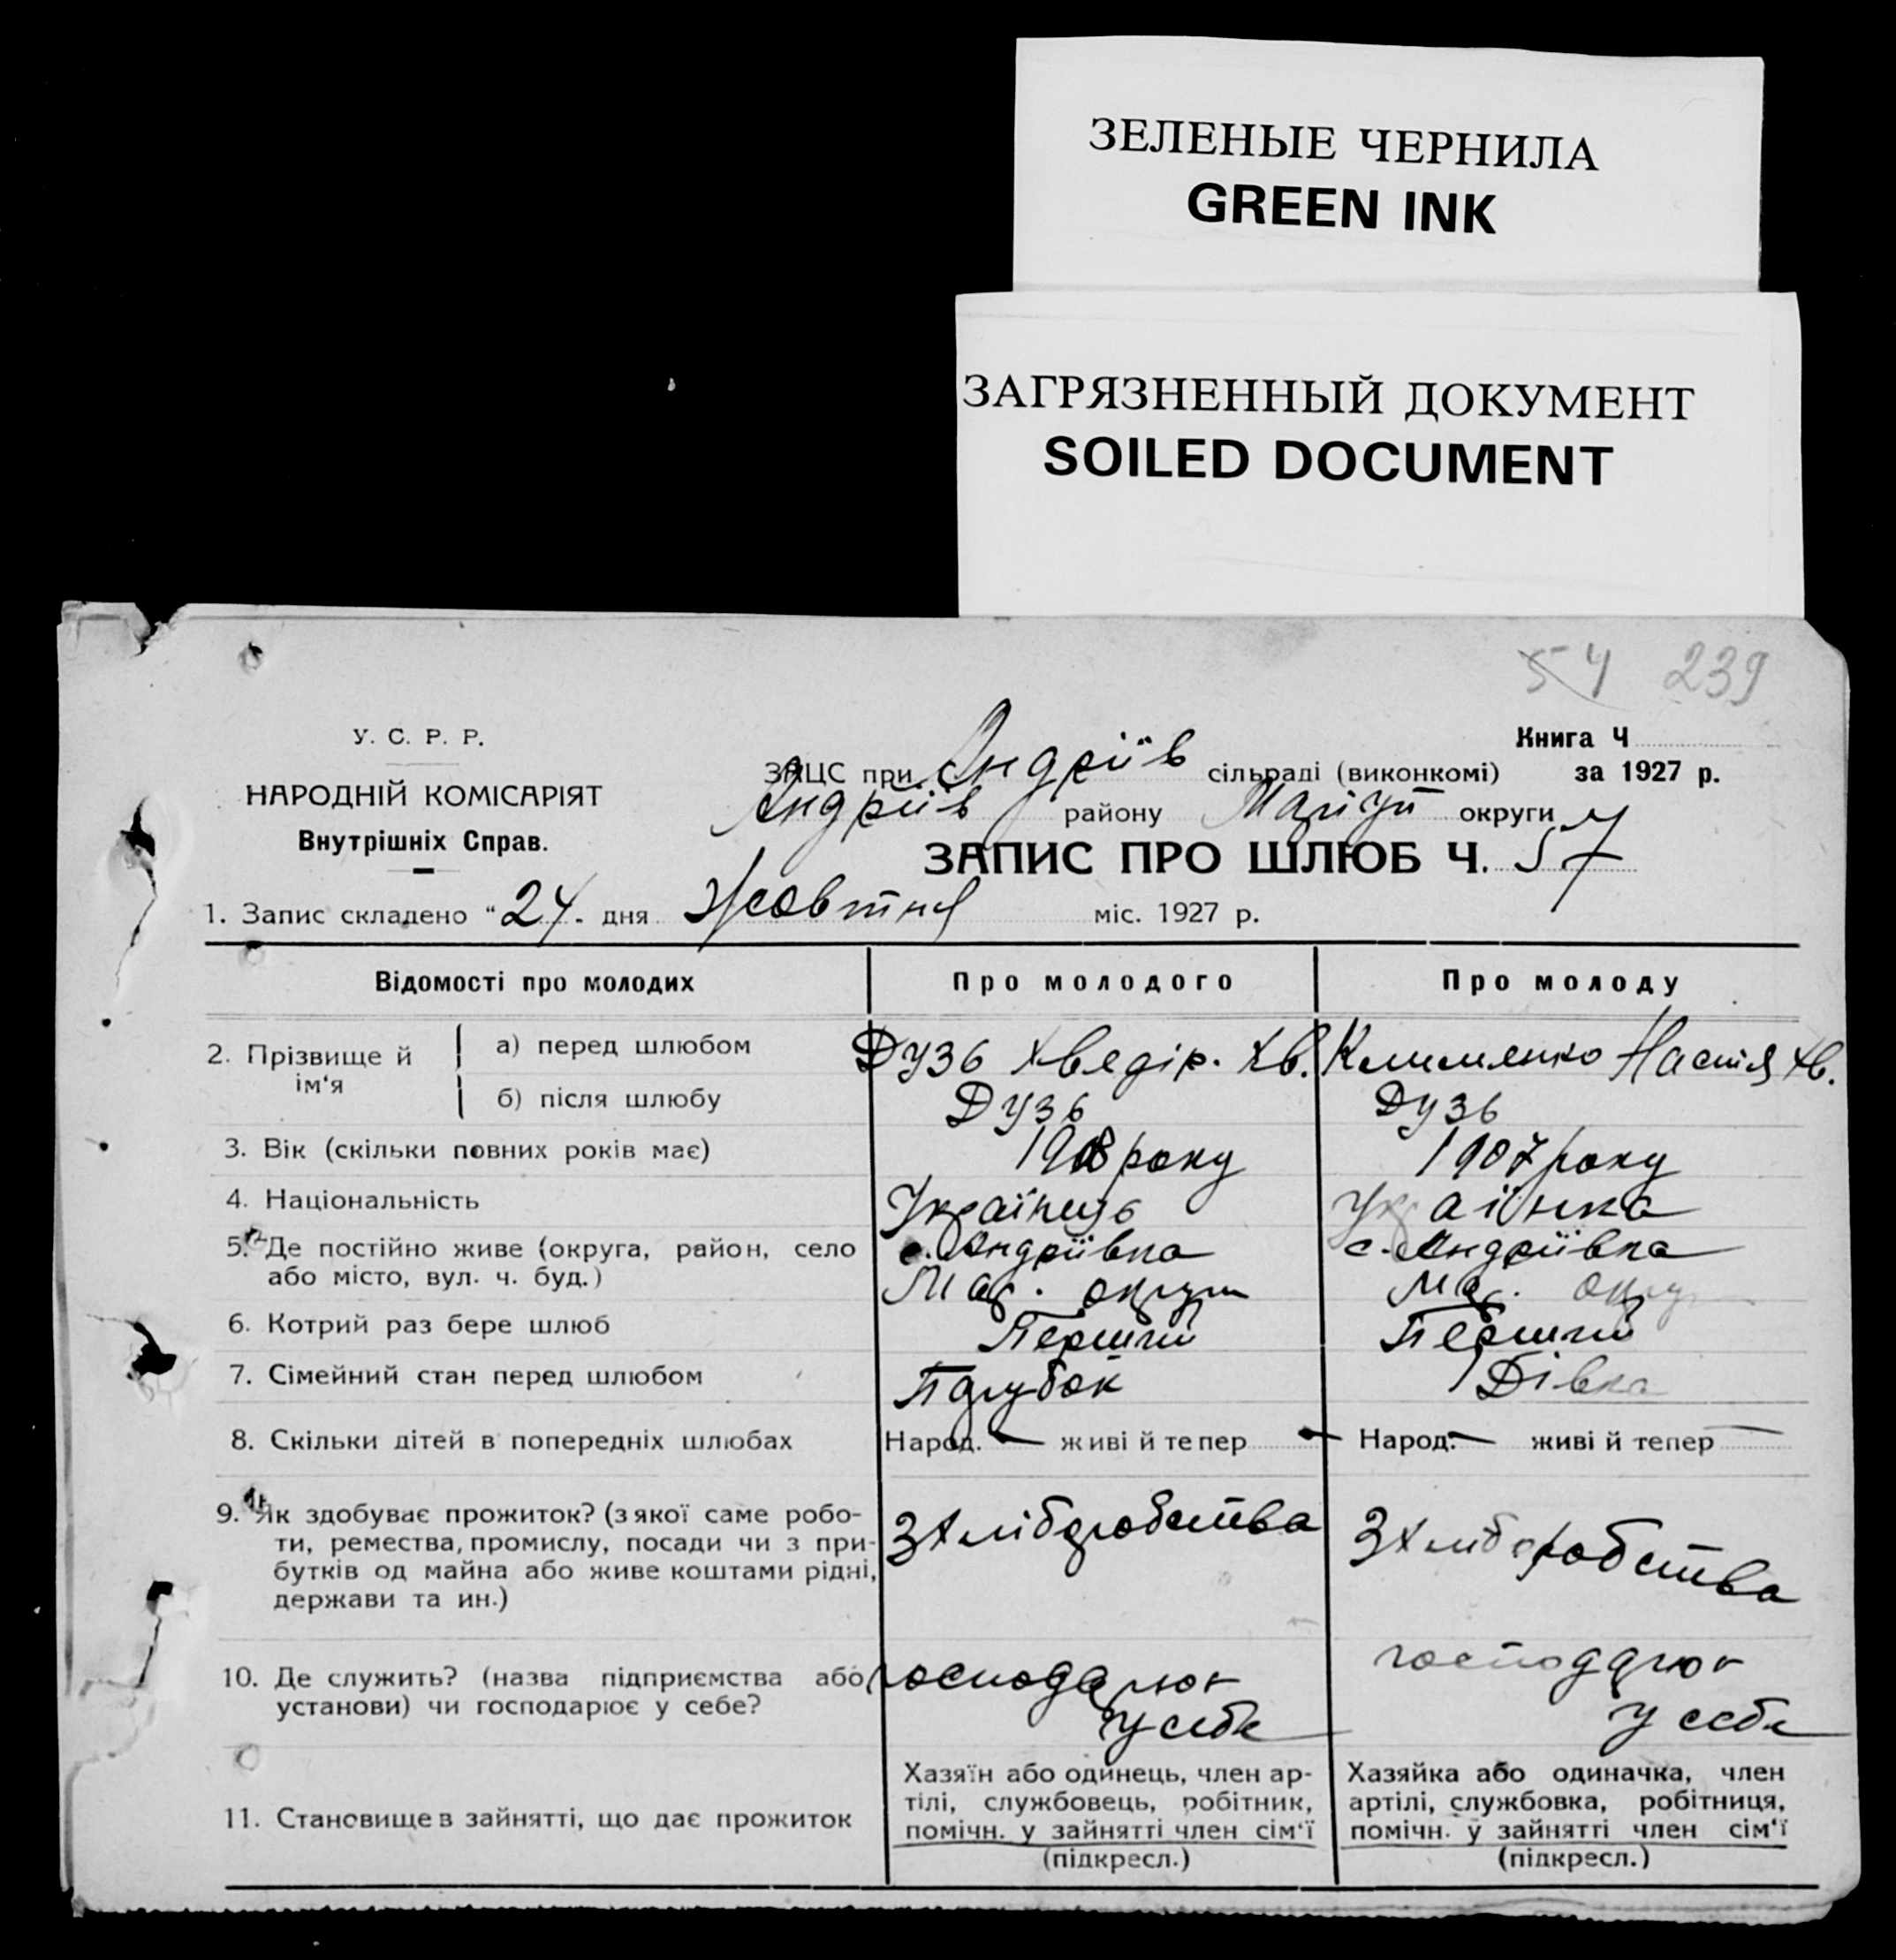 ЗЕЛЕНЫЕ ЧЕРНИЛА
GREEN INK
ЗАГРЯЗНЕННЫЙ ДОКУМЕНТ
SOILED DOCUMENT
54 239
У. С. Р. Р.
НАРОДНІЙ КОМІСАРІЯТ
Внутрішніх Справ.
Книга Ч
ЗАЦС при Андріїв сільраді (виконкомі) за 1927 р.
Андріїв району Маріуп округи
ЗАПИС ПРО ШЛЮБ Ч. 57
1. Запис складено "24" дня Жовтня міс. 1927 р.
Відомості про молодих Про молодого Про молоду
2. Прізвище й ім'я
а) перед шлюбом Дузь Хведір. Хв. Клименко Настія Хв.
б) після шлюбу Дузь Дузь
3. Вік (скільки повних років має) 1908 року 1907 року
4. Національність Українець Українка
5. Де постійно живе (округа, район, село с. Андріївка с. Андріївка
або місто, вул. ч. буд.) Мар. округи Мар. округи
6. Котрий раз бере шлюб Перший Перший
7. Сімейний стан перед шлюбом Парубок Дівка
8. Скільки дітей в попередніх шлюбах Народ. — живі й тепер — Народ. — живі й тепер —
9. Як здобуває прожиток? (з якої саме робо-
ти, ремества, промислу, посади чи з при-
бутків од майна або живе коштами рідні,
держави та ин.)
З хліборобства З хліборобства
10. Де служить? (назва підприємства або господарює господарює
установи) чи господарює у себе? у себе у себе
11. Становище в зайнятті, що дає прожиток
Хазяїн або одинець, член ар-
тілі, службовець, робітник,
помічн. у зайнятті член сім'ї
(підкресл.)
Хазяйка або одиначка, член
артілі, службовка, робітниця,
помічн. у зайнятті член сім'ї
(підкресл.)